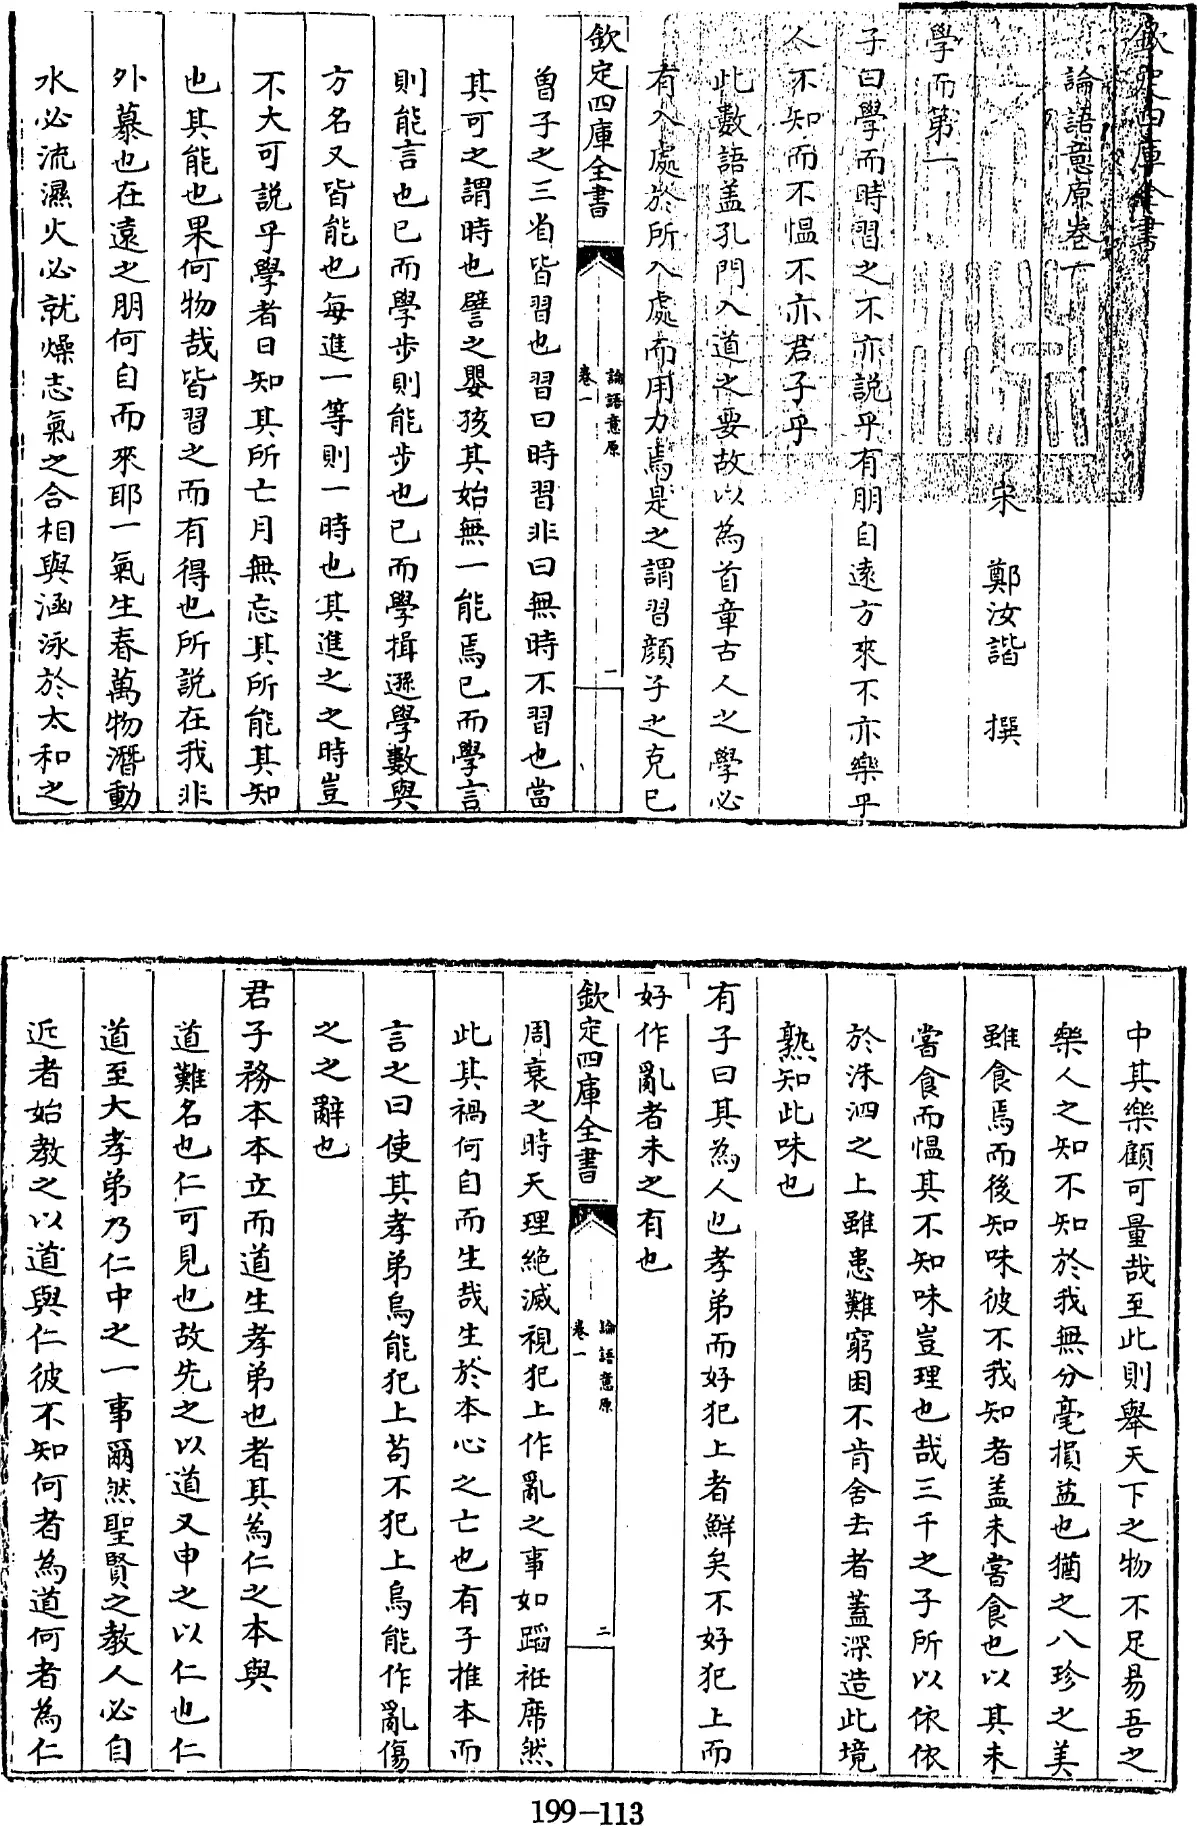 欽定四庫全書
論語意原卷一
宋 鄭汝諧 撰
學而第一
子曰學而時習之不亦説乎有朋自逺方來不亦樂乎
人不知而不愠不亦君子乎
此數語盖孔門入道之要故以為首章古人之學必
有入處於所入處而用力焉是之謂習顔子之克己
欽定四庫全書
論語意原
卷一
一
曾子之三省皆習也習曰時習非曰無時不習也當
其可之謂時也譬之嬰孩其始無一能焉已而學言
則能言也已而學步則能步也已而學揖遜學數與
方名又皆能也每進一等則一時也其進之之時豈
不大可説乎學者日知其所亡月無忘其所能其知
也其能也果何物哉皆習之而有得也所説在我非
外慕也在遠之朋何自而來耶一氣生春萬物潛動
水必流濕火必就燥志氣之合相與涵泳於太和之
中其樂顧可量哉至此則舉天下之物不足易吾之
樂人之知不知於我無分毫損益也猶之八珍之美
雖食焉而後知味彼不我知者盖未嘗食也以其未
嘗食而愠其不知味豈理也哉三千之子所以依依
於洙泗之上雖患難窮困不肯舍去者蓋深造此境
熟知此味也
有子曰其為人也孝弟而好犯上者鮮矣不好犯上而
好作亂者未之有也
欽定四庫全書
論語意原
卷一
二
周衰之時天理絶滅視犯上作亂之事如蹈袵席然
此其禍何自而生哉生於本心之亡也有子推本而
言之曰使其孝弟烏能犯上苟不犯上烏能作亂傷
之之辭也
君子務本本立而道生孝弟也者其為仁之本與
道難名也仁可見也故先之以道又申之以仁也仁
道至大孝弟乃仁中之一事爾然聖賢之教人必自
近者始教之以道與仁彼不知何者為道何者為仁
199-113